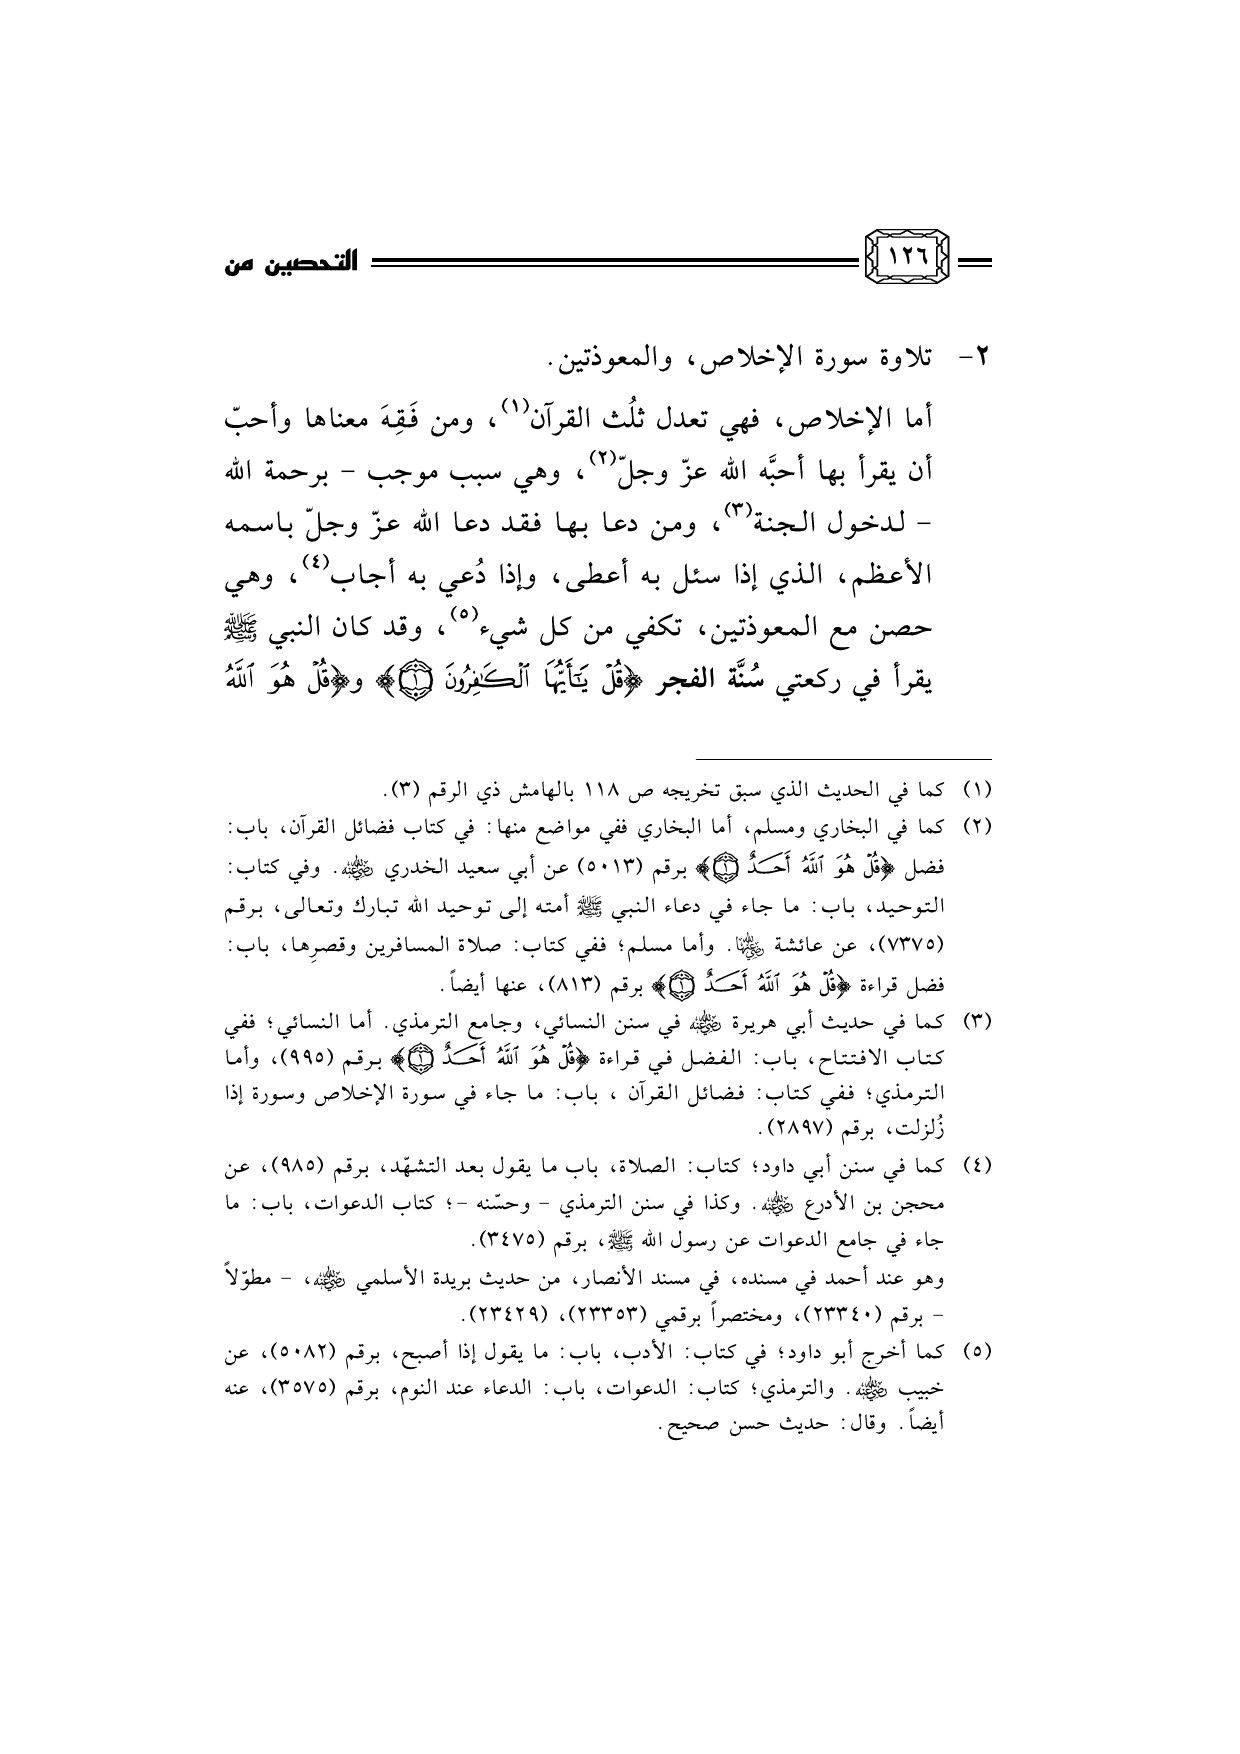 ١٢٦ التحصين من
٢- تلاوة سورة الإخلاص، والمعوذتين.
أما الإخلاص، فهي تعدل ثلُث القرآن(١)، ومن فَقِهَ معناها وأحبّ
أن يقرأ بها أحبَّه الله عزّ وجلّ(٢)، وهي سبب موجب - برحمة الله
- لدخول الجنة(٣)، ومن دعا بها فقد دعا الله عزّ وجلّ باسمه
الأعظم، الذي إذا سئل به أعطى، وإذا دُعي به أجاب(٤)، وهي
حصن مع المعوذتين، تكفي من كل شيء(٥)، وقد كان النبي ﷺ
يقرأ في ركعتي سُنَّة الفجر ﴿قُلۡ يَـٰٓأَيُّهَا ٱلۡكَـٰفِرُونَ ۝١﴾ و﴿قُلۡ هُوَ ٱللَّهُ
(١) كما في الحديث الذي سبق تخريجه ص ١١٨ بالهامش ذي الرقم (٣).
(٢) كما في البخاري ومسلم، أما البخاري ففي مواضع منها: في كتاب فضائل القرآن، باب:
فضل ﴿قُلۡ هُوَ ٱللَّهُ أَحَدٌ ۝١﴾ برقم (٥٠١٣) عن أبي سعيد الخدري رضي الله عنه. وفي كتاب:
التوحيد، باب: ما جاء في دعاء النبي ﷺ أمته إلى توحيد الله تبارك وتعالى، برقم
(٧٣٧٥)، عن عائشة رضي الله عنها. وأما مسلم؛ ففي كتاب: صلاة المسافرين وقصرِها، باب:
فضل قراءة ﴿قُلۡ هُوَ ٱللَّهُ أَحَدٌ ۝١﴾ برقم (٨١٣)، عنها أيضاً.
(٣) كما في حديث أبي هريرة رضي الله عنه في سنن النسائي، وجامع الترمذي. أما النسائي؛ ففي
كتاب الافتتاح، باب: الفضل في قراءة ﴿قُلۡ هُوَ ٱللَّهُ أَحَدٌ ۝١﴾ برقم (٩٩٥)، وأما
الترمذي؛ ففي كتاب: فضائل القرآن ، باب: ما جاء في سورة الإخلاص وسورة إذا
زُلزلت، برقم (٢٨٩٧).
(٤) كما في سنن أبي داود؛ كتاب: الصلاة، باب ما يقول بعد التشهّد، برقم (٩٨٥)، عن
محجن بن الأدرع رضي الله عنه. وكذا في سنن الترمذي - وحسّنه -؛ كتاب الدعوات، باب: ما
جاء في جامع الدعوات عن رسول الله ﷺ، برقم (٣٤٧٥).
وهو عند أحمد في مسنده، في مسند الأنصار، من حديث بريدة الأسلمي رضي الله عنه، - مطوّلاً
- برقم (٢٣٣٤٠)، ومختصراً برقمي (٢٣٣٥٣)، (٢٣٤٢٩).
(٥) كما أخرج أبو داود؛ في كتاب: الأدب، باب: ما يقول إذا أصبح، برقم (٥٠٨٢)، عن
خبيب رضي الله عنه. والترمذي؛ كتاب: الدعوات، باب: الدعاء عند النوم، برقم (٣٥٧٥)، عنه
أيضاً. وقال: حديث حسن صحيح.